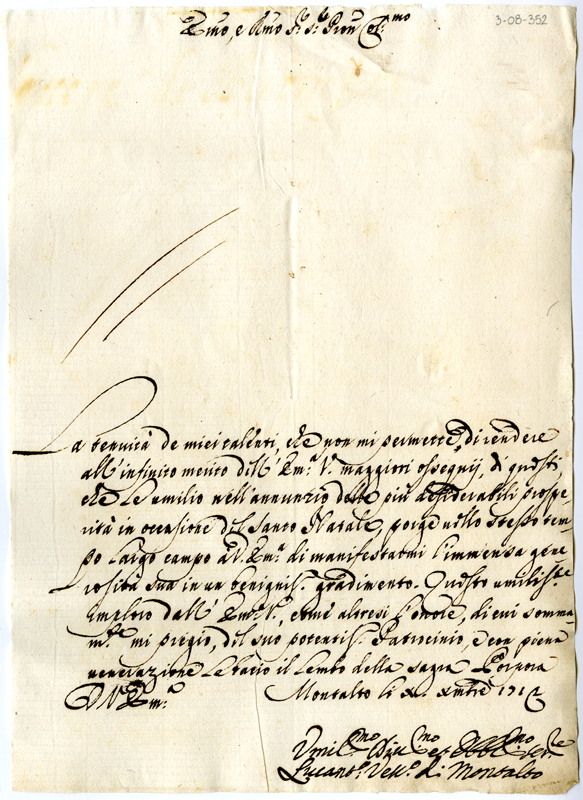 3-08-352
Emo, e Rmo Sr. Sr. Pron Col.mo
La tenuità de miei talenti, che non mi permette, di rendere
all'infinito merito dell'Em.a V. maggiori ossequij, di questi,
che Le umilio nell'annunzio delle più desiderabili prospe-
rità in occasione del Santo Natale, porge nello stesso tem-
po largo campo a V. Em.a di manifestarmi l'immensa gene
rosità sua in un benigniss. gradimento. Questo umilis.te
imploro dall'Em.a V., come altresi l'onore, di cui somma-
m.te mi pregio, del suo potentis. Patrocinio, e con piena
venerazione Le bacio il Lembo della sagra Porpora
D V. Em.a Montalto li Xmbre 1712
Umil.mo Div.mo et Obbl.mo Ser.re
Lucant.o Vesc.o di Montalto